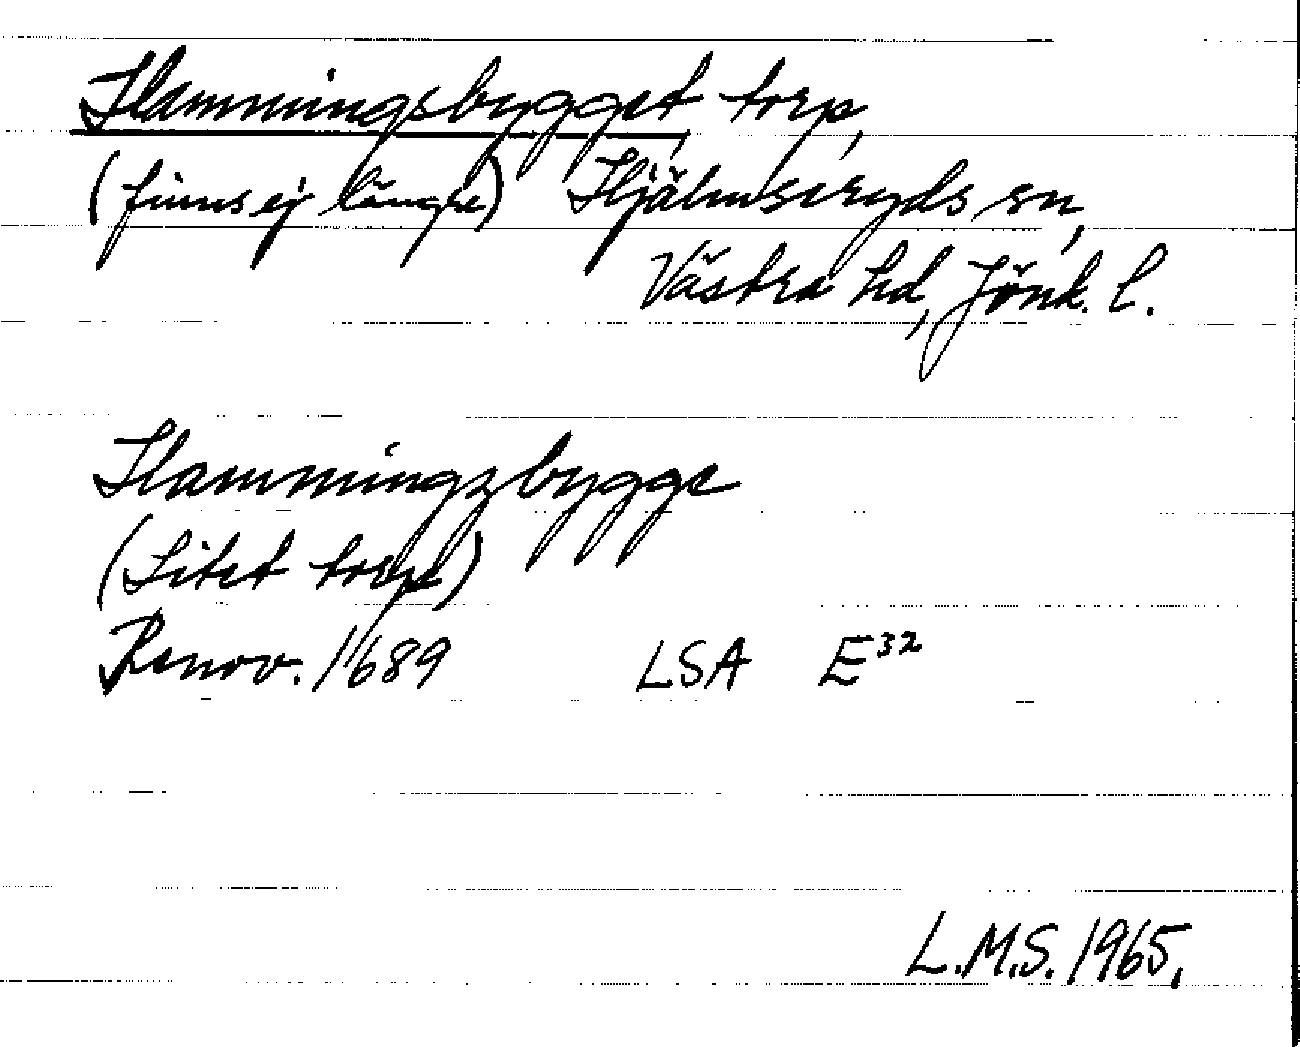 Hammingsbygget torp,
(finns ej längre) Hjälmseryds sn,
Västra hd, Jönk. l.
Hammingzbygge
(Litet torp)
Renov. 1689 LSA E³²
L.M.S. 1965.